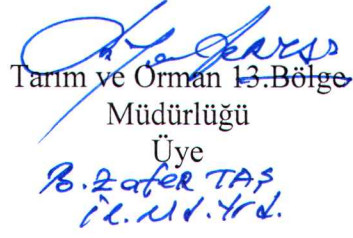 Tarım ve Orman 13.Bölge
Müdürlüğü
Üye
B. Zafer TAŞ
İl. Md. Yrd.